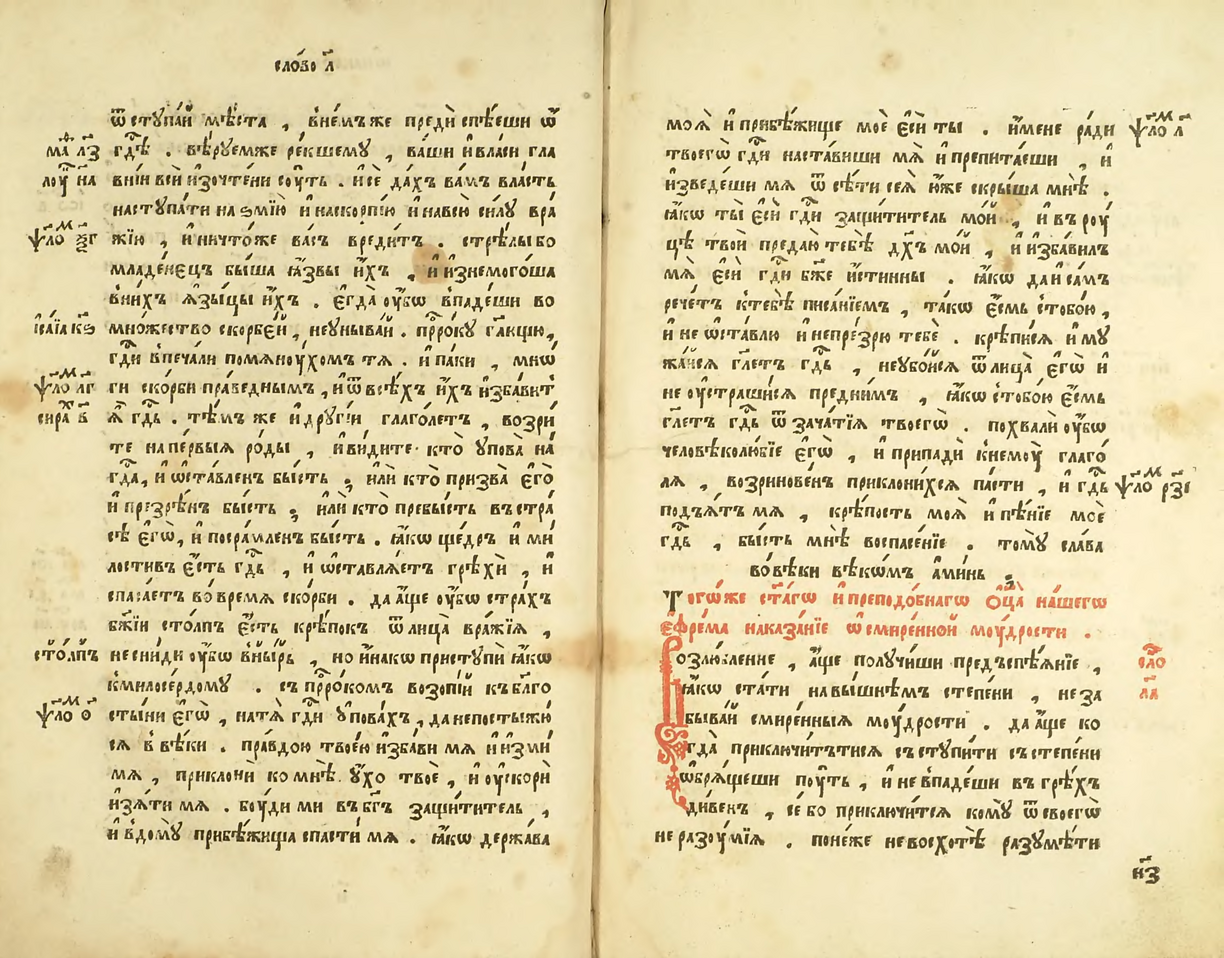 слово л҃
ѿступай мѣста , внемъже преди спѣеши ѿ
гдѣ . вѣруемже рекшему , ваши ивласи гла
мѳ҃ лз
внiи вси изочтени соуть . исе дахъ вамъ власть
лоу҃ на
наступати на ѕмiю и наскорпiю и навсю силу вра
жiю , иничтоже васъ вредитъ . стрѣлы бо
ѱало ѯг
младенецъ быша ꙗзвы ихъ , и изнемогоша
внихъ ѧзыцы ихъ . егда оубѡ впадеши во
множество скорбеи , неунывай . прⷪ҇року гл҃ющю ,
исаiа кѕ
гдⷭ҇и впечали помѧноухомъ тѧ . ипаки , мнѡ
ги скорби праведнымъ , иѿ всѣхъ ихъ избавит
ѱало лг
ѧ гдⷭ҇ь . тѣмъ же идругiи глаголетъ , возри
сира в
те напервыѧ роды , ивидите кто упова на
гдⷭ҇а , и ѡставленъ бысть ; или кто призва его
и презрѣнъ бысть ; или кто пребысть въстра
сѣ егѡ , и посрамленъ бысть . ꙗкѡ щедръ и ми
лостивъ есть гдⷭ҇ь , и ѡставлѧетъ грѣхи , и
спасаетъ вовремѧ скорби . да аще оубѡ страхъ
бж҃iи столпъ есть крѣпокъ ѿ лица вражiѧ ,
несниди оубѡ внырь , но инакѡ приступи ꙗкѡ
столпъ
кмилосердому . съ прⷪ҇рокомъ возопiй къ бл҃го
стыни егѡ , натѧ гдⷭ҇и уповахъ , данепостыжю
ѱало о
сѧ в вѣки . правдою твоею избави мѧ и изми
мѧ , приклони ко мнѣ ухо твое , и оускори
изѧти мѧ . боуди ми въ бг҃ъ защитителъ ,
и вдому прибѣжища спасти мѧ . ꙗкѡ держава
моѧ и прибѣжище мое еси ты . имене ради
ѱало л
твоегѡ гдⷭ҇и наставиши мѧ и препитаеши , и
изведеши мѧ ѿ сѣти сеѧ юже скрыша мнѣ .
ꙗкѡ ты еси гдⷭ҇и защитителъ мой , и въ роу
цѣ твои предаю тебѣ дх҃ъ мой , и избавилъ
мѧ еси гдⷭ҇и бж҃е истинны . ꙗкѡ да и самъ
речетъ ктебѣ писанiемъ , такѡ есмь стобою ,
и не ѡставлю инепрезрю тебе . крѣписѧ и му
жайсѧ гл҃етъ гдⷭ҇ь , неубойсѧ ѿ лица егѡ и
не оустрашисѧ преднимъ , ꙗкѡ стобою есмь
гл҃етъ гдⷭ҇ь ѿ зачатiѧ твоегѡ . похвали оубѡ
человѣколюбiе егѡ , и припади кнемоу глаго
лѧ , возриновенъ приклонихсѧ пасти , и гдⷭ҇ь
ѱало рзi
подъѧтъ мѧ , крѣпость моѧ и пѣнiе мое
гдⷭ҇ь , бысть мнѣ воспасенiе . тому слава
вовѣки вѣкѡмъ аминь .
Тогѡже ст҃агѡ ипреподобнагѡ ѻц҃а нашегѡ
ефрема наказанiе ѡсмиреннои моудрости .
Возлюбление , аще получиши предъспѣѧнiе ,
сло
ла
ꙗкѡ стати навышнѣмъ степени , не за
бывай смиренныѧ моудрости . да аще ко
гда приключитътисѧ съступити състепени
ѡбрѧщеши поуть , и не впадеши въ грѣхъ
дивенъ , се бо приключитсѧ кому ѿ своегѡ
неразоумiѧ . понеже невосхотѣ разумѣти
нз